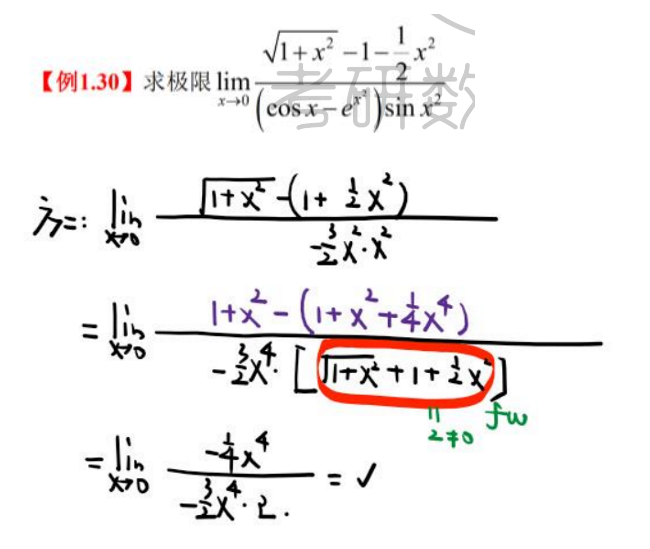 【例1.30】求极限 lim x→0 (√(1+x²) −1− 1/2 x²) / ((cos x − e^(x²)) sin x²)
考研数
方二: lim x→0 (√(1+x²) −(1+ 1/2 x²)) / (−3/2 x²·x²)
= lim x→0 (1+x² − (1+x²+ 1/4 x⁴)) / (−3/2 x⁴· [√(1+x²) +1+ 1/2 x²])
‖ 2≠0
= lim x→0 (−1/4 x⁴) / (−3/2 x⁴·2.) = ✓